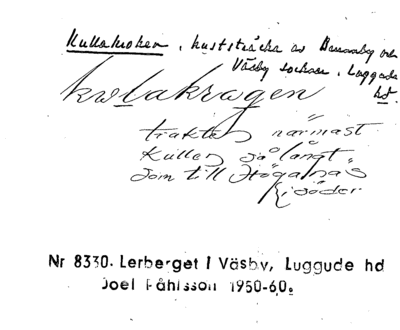 Kullakroken, kuststräcka av Brunnby och
Väsby socknar, Luggude
hd.
kwlakragen
trakten närmast
Kullen så långt
som till Höganäs
i söder
Nr 8330. Lerberget i Väsby, Luggude hd
Joel Påhlsson 1950-60.